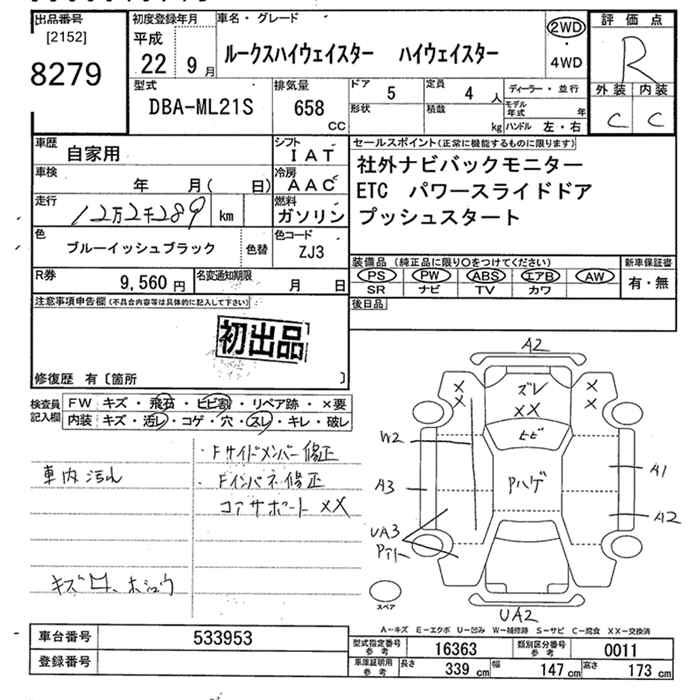 出品番号
[2152]
8279
初度登録年月
平成
22 9月
車名・グレード
ルークスハイウェイスター ハイウェイスター
2WD
・
4WD
評価点
R
外装 内装
C C
型式
DBA-ML21S
排気量
658
CC
ドア 5
定員 4 人
形状
積載 kg
ディーラー・並行
モデル年式 年
ハンドル 左・右
車歴 自家用
シフト IAT
車検 年 月( 日)
冷房 AAC
走行 12万2千289 km
燃料 ガソリン
色 ブルーイッシュブラック
色替
色コード ZJ3
R券 9,560円
名変通知期限 月 日
セールスポイント(正常に機能するものに限ります)
社外ナビバックモニター
ETC パワースライドドア
プッシュスタート
装備品(純正品に限り○をつけてください)
PS PW ABS エアB AW
SR ナビ TV カワ
新車保証書
有・無
後日品
注意事項申告欄(不具合内容等は具体的に記入して下さい)
初出品
修復歴 有〔箇所 〕
検査員記入欄
FW キズ・飛石・ヒビ割・リペア跡・×要
内装 キズ・汚レ・コゲ・穴・スレ・キレ・破レ
・Fサイドメンバー修正
車内汚れ
・Fインパネ修正
コアサポート XX
キズ
A2
X X
X X
ズレ
XX
ヒビ
W2
A1
A3
Pハゲ
A2
UA3
スペア
UA2
A-キズ E-エクボ U-凹み W-補修跡 S-サビ C-腐食 XX-交換済
車台番号 533953
登録番号
型式指定番号 参考 16363
類別区分番号 参考 0011
車庫証明用 参考 長さ 339 cm 幅 147 cm 高さ 173 cm